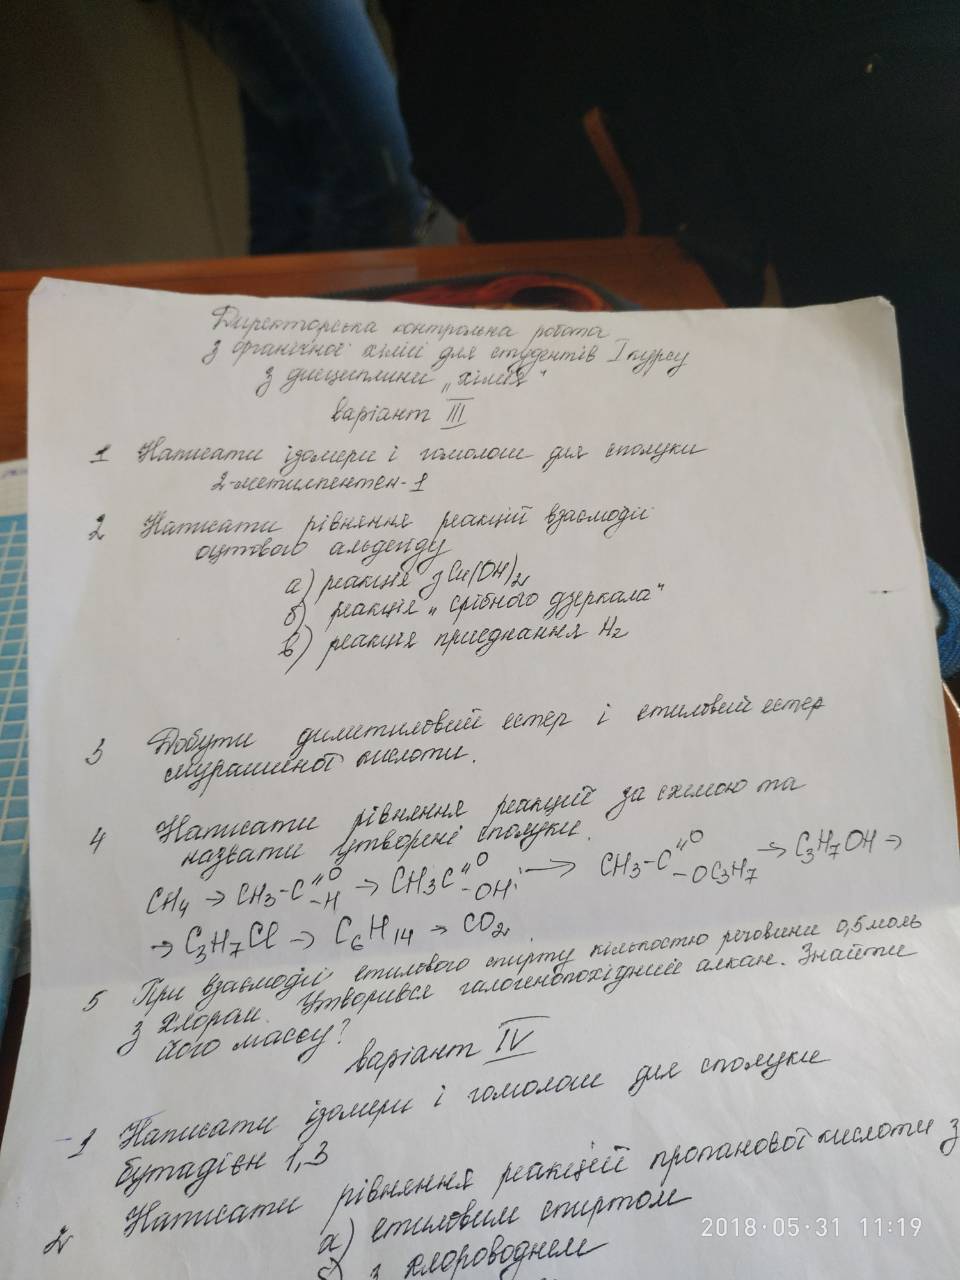 Директорська контрольна робота
з органічної хімії для студентів I курсу
з дисципліни „хімія"
варіант III
1 Написати ізомери і гомологи для сполуки
2-метилпентен-1
2 Написати рівняння реакцій взаємодії
оцтового альдегіду
а) реакція з Cu(OH)₂
б) реакція „срібного дзеркала"
в) реакція приєднання H₂
3 Добути диметиловий естер і етиловий естер
мурашиної кислоти.
4 Написати рівняння реакцій за схемою та
назвати утворені сполуки.
CH₄ → CH₃-C=O-H → CH₃C=O-OH → CH₃-C=O-OC₃H₇ → C₃H₇OH →
→ C₃H₇Cl → C₆H₁₄ → CO₂
5 При взаємодії етилового спирту кількостю речовини 0,5 моль
з хлором. Утворився галогенопохідний алкан. Знайти
його массу?
варіант IV
1 Написати ізомери і гомологи для сполуки
бутадієн 1,3
2 Написати рівняння реакцій пропанової кислоти з
а) етиловим спиртом
б) з хлороводнем
2018·05·31 11:19